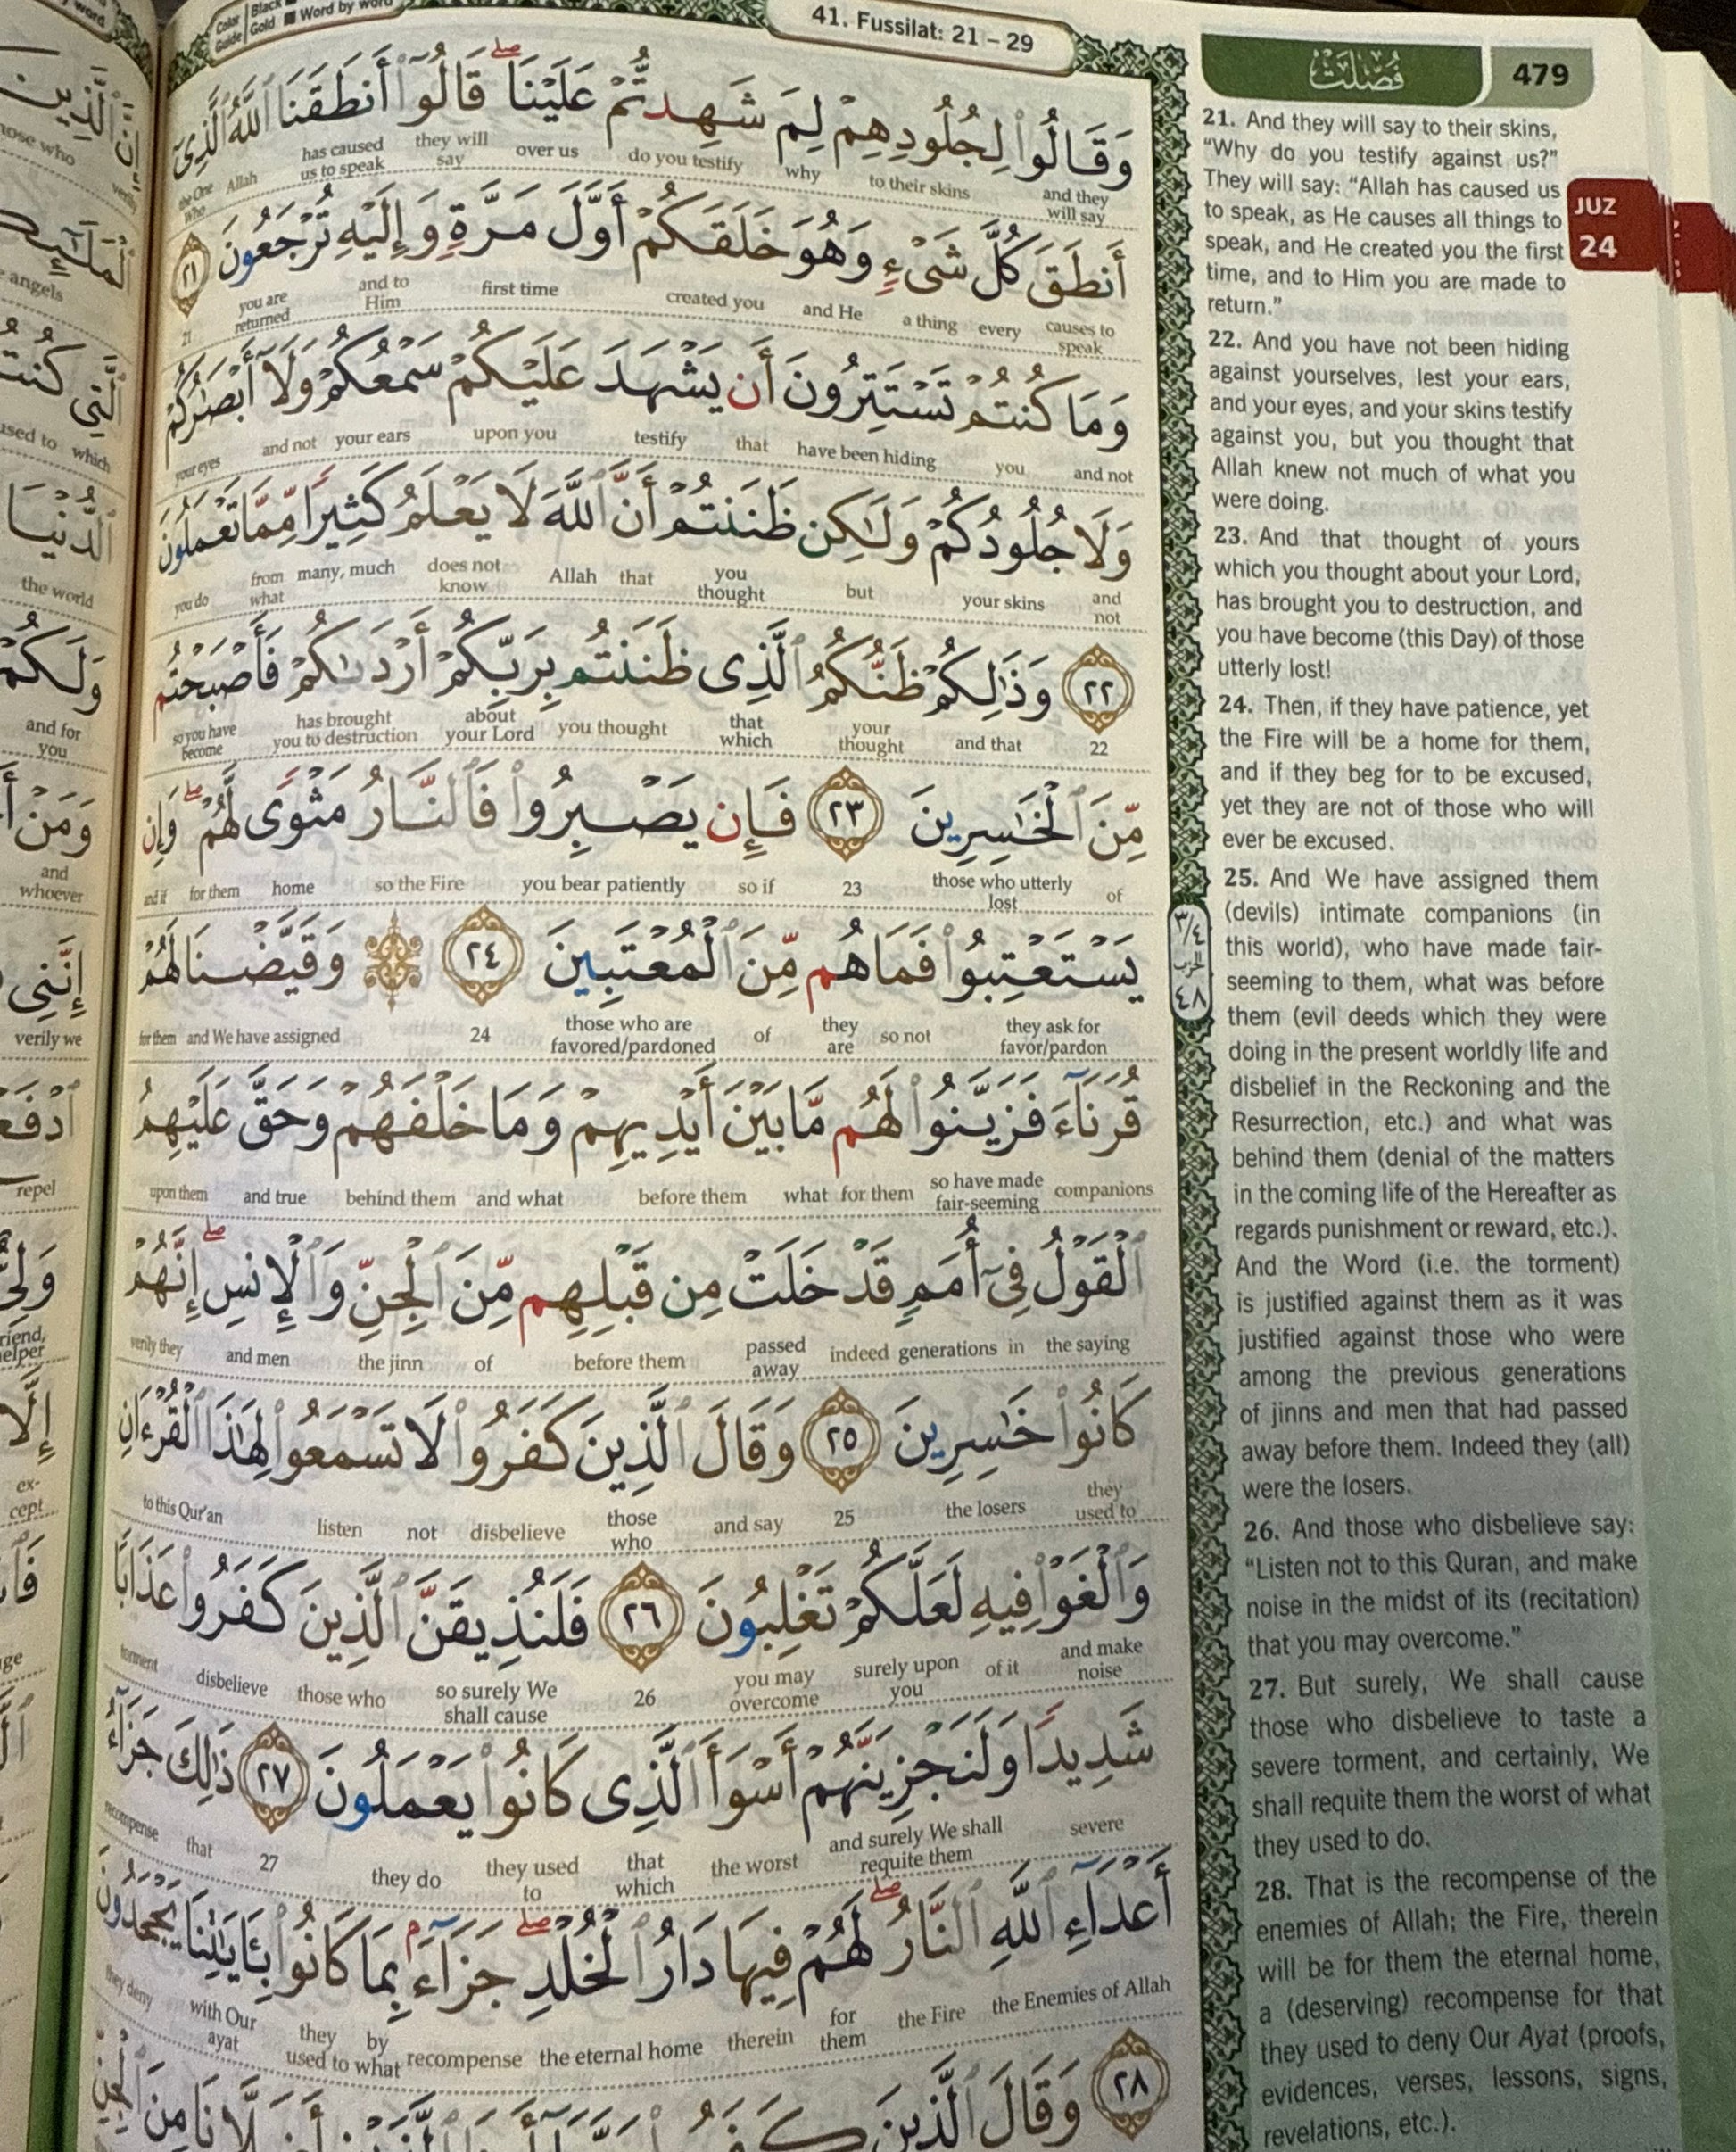 41. Fussilat: 21 – 29
Word by word
وَقَالُوا۟ لِجُلُودِهِمْ لِمَ شَهِدتُّمْ عَلَيْنَا ۖ قَالُوٓا۟ أَنطَقَنَا ٱللَّهُ ٱلَّذِىٓ
and they will say to their skins why do you testify over us they will say has caused us to speak Allah the One Who
أَنطَقَ كُلَّ شَىْءٍ وَهُوَ خَلَقَكُمْ أَوَّلَ مَرَّةٍ وَإِلَيْهِ تُرْجَعُونَ ٢١
causes to speak every a thing and He created you first time and to Him you are returned 21
وَمَا كُنتُمْ تَسْتَتِرُونَ أَن يَشْهَدَ عَلَيْكُمْ سَمْعُكُمْ وَلَآ أَبْصَٰرُكُمْ
and not you have been hiding that testify upon you your ears and not your eyes
وَلَا جُلُودُكُمْ وَلَٰكِن ظَنَنتُمْ أَنَّ ٱللَّهَ لَا يَعْلَمُ كَثِيرًا مِّمَّا تَعْمَلُونَ
and not your skins but you thought that Allah does not know many, much from what you do
٢٢ وَذَٰلِكُمْ ظَنُّكُمُ ٱلَّذِى ظَنَنتُم بِرَبِّكُمْ أَرْدَىٰكُمْ فَأَصْبَحْتُم
22 and that your thought that which you thought about your Lord has brought you to destruction so you have become
مِّنَ ٱلْخَٰسِرِينَ ٢٣ فَإِن يَصْبِرُوا۟ فَٱلنَّارُ مَثْوًى لَّهُمْ ۖ وَإِن
of those who utterly lost 23 so if you bear patiently so the Fire home for them and if
يَسْتَعْتِبُوا۟ فَمَا هُم مِّنَ ٱلْمُعْتَبِينَ ٢٤ ۞ وَقَيَّضْنَا لَهُمْ
they ask for favor/pardon so not they are of those who are favored/pardoned 24 and We have assigned for them
قُرَنَآءَ فَزَيَّنُوا۟ لَهُم مَّا بَيْنَ أَيْدِيهِمْ وَمَا خَلْفَهُمْ وَحَقَّ عَلَيْهِمُ
companions so have made fair-seeming for them what before them and what behind them and true upon them
ٱلْقَوْلُ فِىٓ أُمَمٍ قَدْ خَلَتْ مِن قَبْلِهِم مِّنَ ٱلْجِنِّ وَٱلْإِنسِ ۖ إِنَّهُمْ
the saying in generations indeed passed away before them of the jinn and men verily they
كَانُوا۟ خَٰسِرِينَ ٢٥ وَقَالَ ٱلَّذِينَ كَفَرُوا۟ لَا تَسْمَعُوا۟ لِهَٰذَا ٱلْقُرْءَانِ
they used to the losers 25 and say those who disbelieve not listen to this Qur'an
وَٱلْغَوْا۟ فِيهِ لَعَلَّكُمْ تَغْلِبُونَ ٢٦ فَلَنُذِيقَنَّ ٱلَّذِينَ كَفَرُوا۟ عَذَابًا
and make noise of it surely upon you you may overcome 26 so surely We shall cause those who disbelieve torment
شَدِيدًا وَلَنَجْزِيَنَّهُمْ أَسْوَأَ ٱلَّذِى كَانُوا۟ يَعْمَلُونَ ٢٧ ذَٰلِكَ جَزَآءُ
severe and surely We shall requite them the worst that which they used to they do 27 that recompense
أَعْدَآءِ ٱللَّهِ ٱلنَّارُ ۖ لَهُمْ فِيهَا دَارُ ٱلْخُلْدِ ۖ جَزَآءًۢ بِمَا كَانُوا۟ بِـَٔايَٰتِنَا يَجْحَدُونَ
the Enemies of Allah the Fire for them therein the eternal home recompense by what they used to with Our ayat they deny
٢٨ وَقَالَ ٱلَّذِينَ
٣/٤
الحزب
٤٨
فُصِّلَتْ
479
JUZ
24
21. And they will say to their skins,
“Why do you testify against us?”
They will say: “Allah has caused us
to speak, as He causes all things to
speak, and He created you the first
time, and to Him you are made to
return.”
22. And you have not been hiding
against yourselves, lest your ears,
and your eyes, and your skins testify
against you, but you thought that
Allah knew not much of what you
were doing.
23. And that thought of yours
which you thought about your Lord,
has brought you to destruction, and
you have become (this Day) of those
utterly lost!
24. Then, if they have patience, yet
the Fire will be a home for them,
and if they beg for to be excused,
yet they are not of those who will
ever be excused.
25. And We have assigned them
(devils) intimate companions (in
this world), who have made fair-
seeming to them, what was before
them (evil deeds which they were
doing in the present worldly life and
disbelief in the Reckoning and the
Resurrection, etc.) and what was
behind them (denial of the matters
in the coming life of the Hereafter as
regards punishment or reward, etc.).
And the Word (i.e. the torment)
is justified against them as it was
justified against those who were
among the previous generations
of jinns and men that had passed
away before them. Indeed they (all)
were the losers.
26. And those who disbelieve say:
“Listen not to this Quran, and make
noise in the midst of its (recitation)
that you may overcome.”
27. But surely, We shall cause
those who disbelieve to taste a
severe torment, and certainly, We
shall requite them the worst of what
they used to do.
28. That is the recompense of the
enemies of Allah; the Fire, therein
will be for them the eternal home,
a (deserving) recompense for that
they used to deny Our Ayat (proofs,
evidences, verses, lessons, signs,
revelations, etc.).